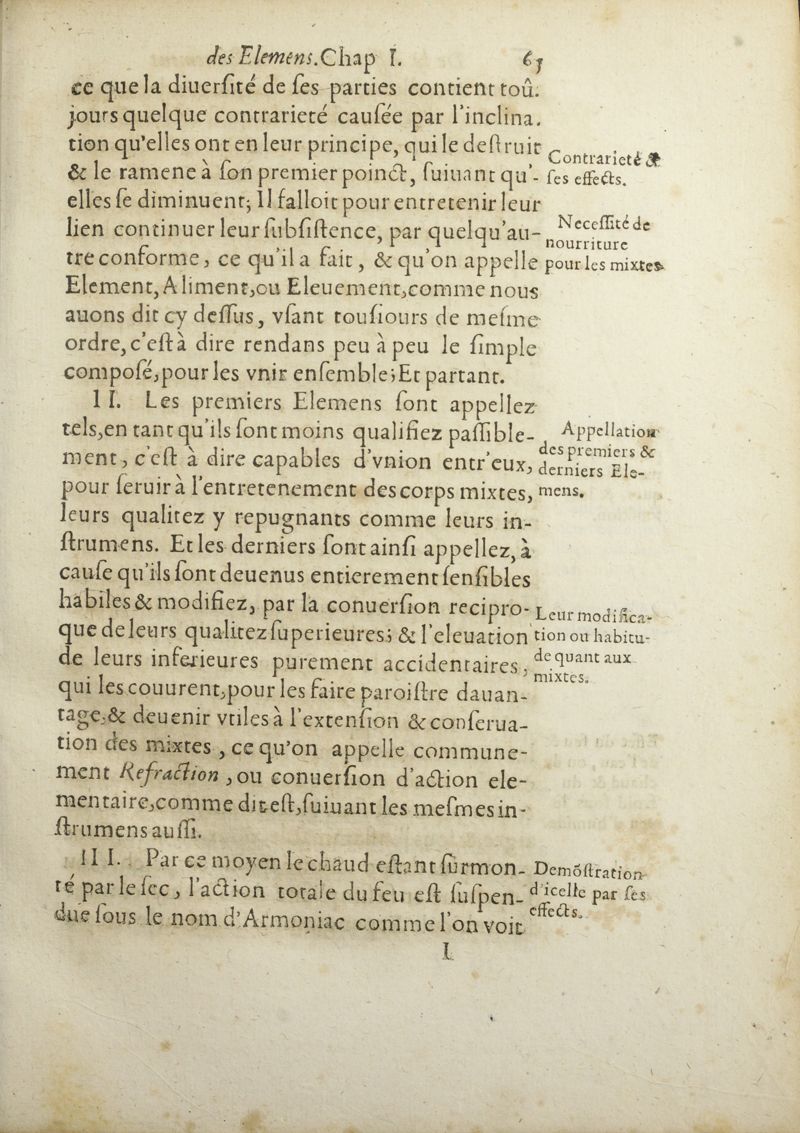 des Elemens. Chap I. 65
ce que la diuerſité de ſes parties contient toû.
jours quelque contrarieté cauſée par l'inclina.
tion qu'elles ont en leur principe, qui le deſtruit
& le ramene à ſon premier poinct, ſuiuant qu'-
elles ſe diminuent; Il falloit pour entretenir leur
lien continuer leur ſubſiſtence, par quelqu'au-
tre conforme, ce qu'il a fait, & qu'on appelle
Element, Aliment, ou Eleuement, comme nous
auons dit cy deſſus, vſant touſiours de meſme
ordre, c'eſt à dire rendans peu à peu le ſimple
compoſé, pour les vnir enſemble; Et partant.
II. Les premiers Elemens ſont appellez
tels, en tant qu'ils ſont moins qualifiez paſſible-
ment, c'eſt à dire capables d'vnion entr'eux,
pour ſeruir à l'entretenement des corps mixtes,
leurs qualitez y repugnants comme leurs in-
ſtrumens. Et les derniers ſont ainſi appellez, à
cauſe qu'ils ſont deuenus entierement ſenſibles
habiles & modifiez, par la conuerſion recipro-
que de leurs qualitez ſuperieures; & l'eleuation
de leurs inferieures purement accidentaires,
qui les couurent, pour les faire paroiſtre dauan-
tage, & deuenir vtiles à l'extenſion & conſerua-
tion des mixtes, ce qu'on appelle commune-
ment Refraction, ou conuerſion d'action ele-
mentaire, comme dit eſt, ſuiuant les meſmes in-
ſtrumens auſſi.
III. Par ce moyen le chaud eſtant ſurmon-
té par le ſec, l'action totale du feu eſt ſuſpen-
due ſous le nom d'Armoniac comme l'on voit
I
Contrarieté &
ſes effects.
Neceſſité de
nourriture
pour les mixtes
Appellation
des premiers &
derniers Ele-
mens.
Leur modifica-
tion ou habitu-
de quant aux
mixtes.
Demõſtration
d'icelle par ſes
effects.